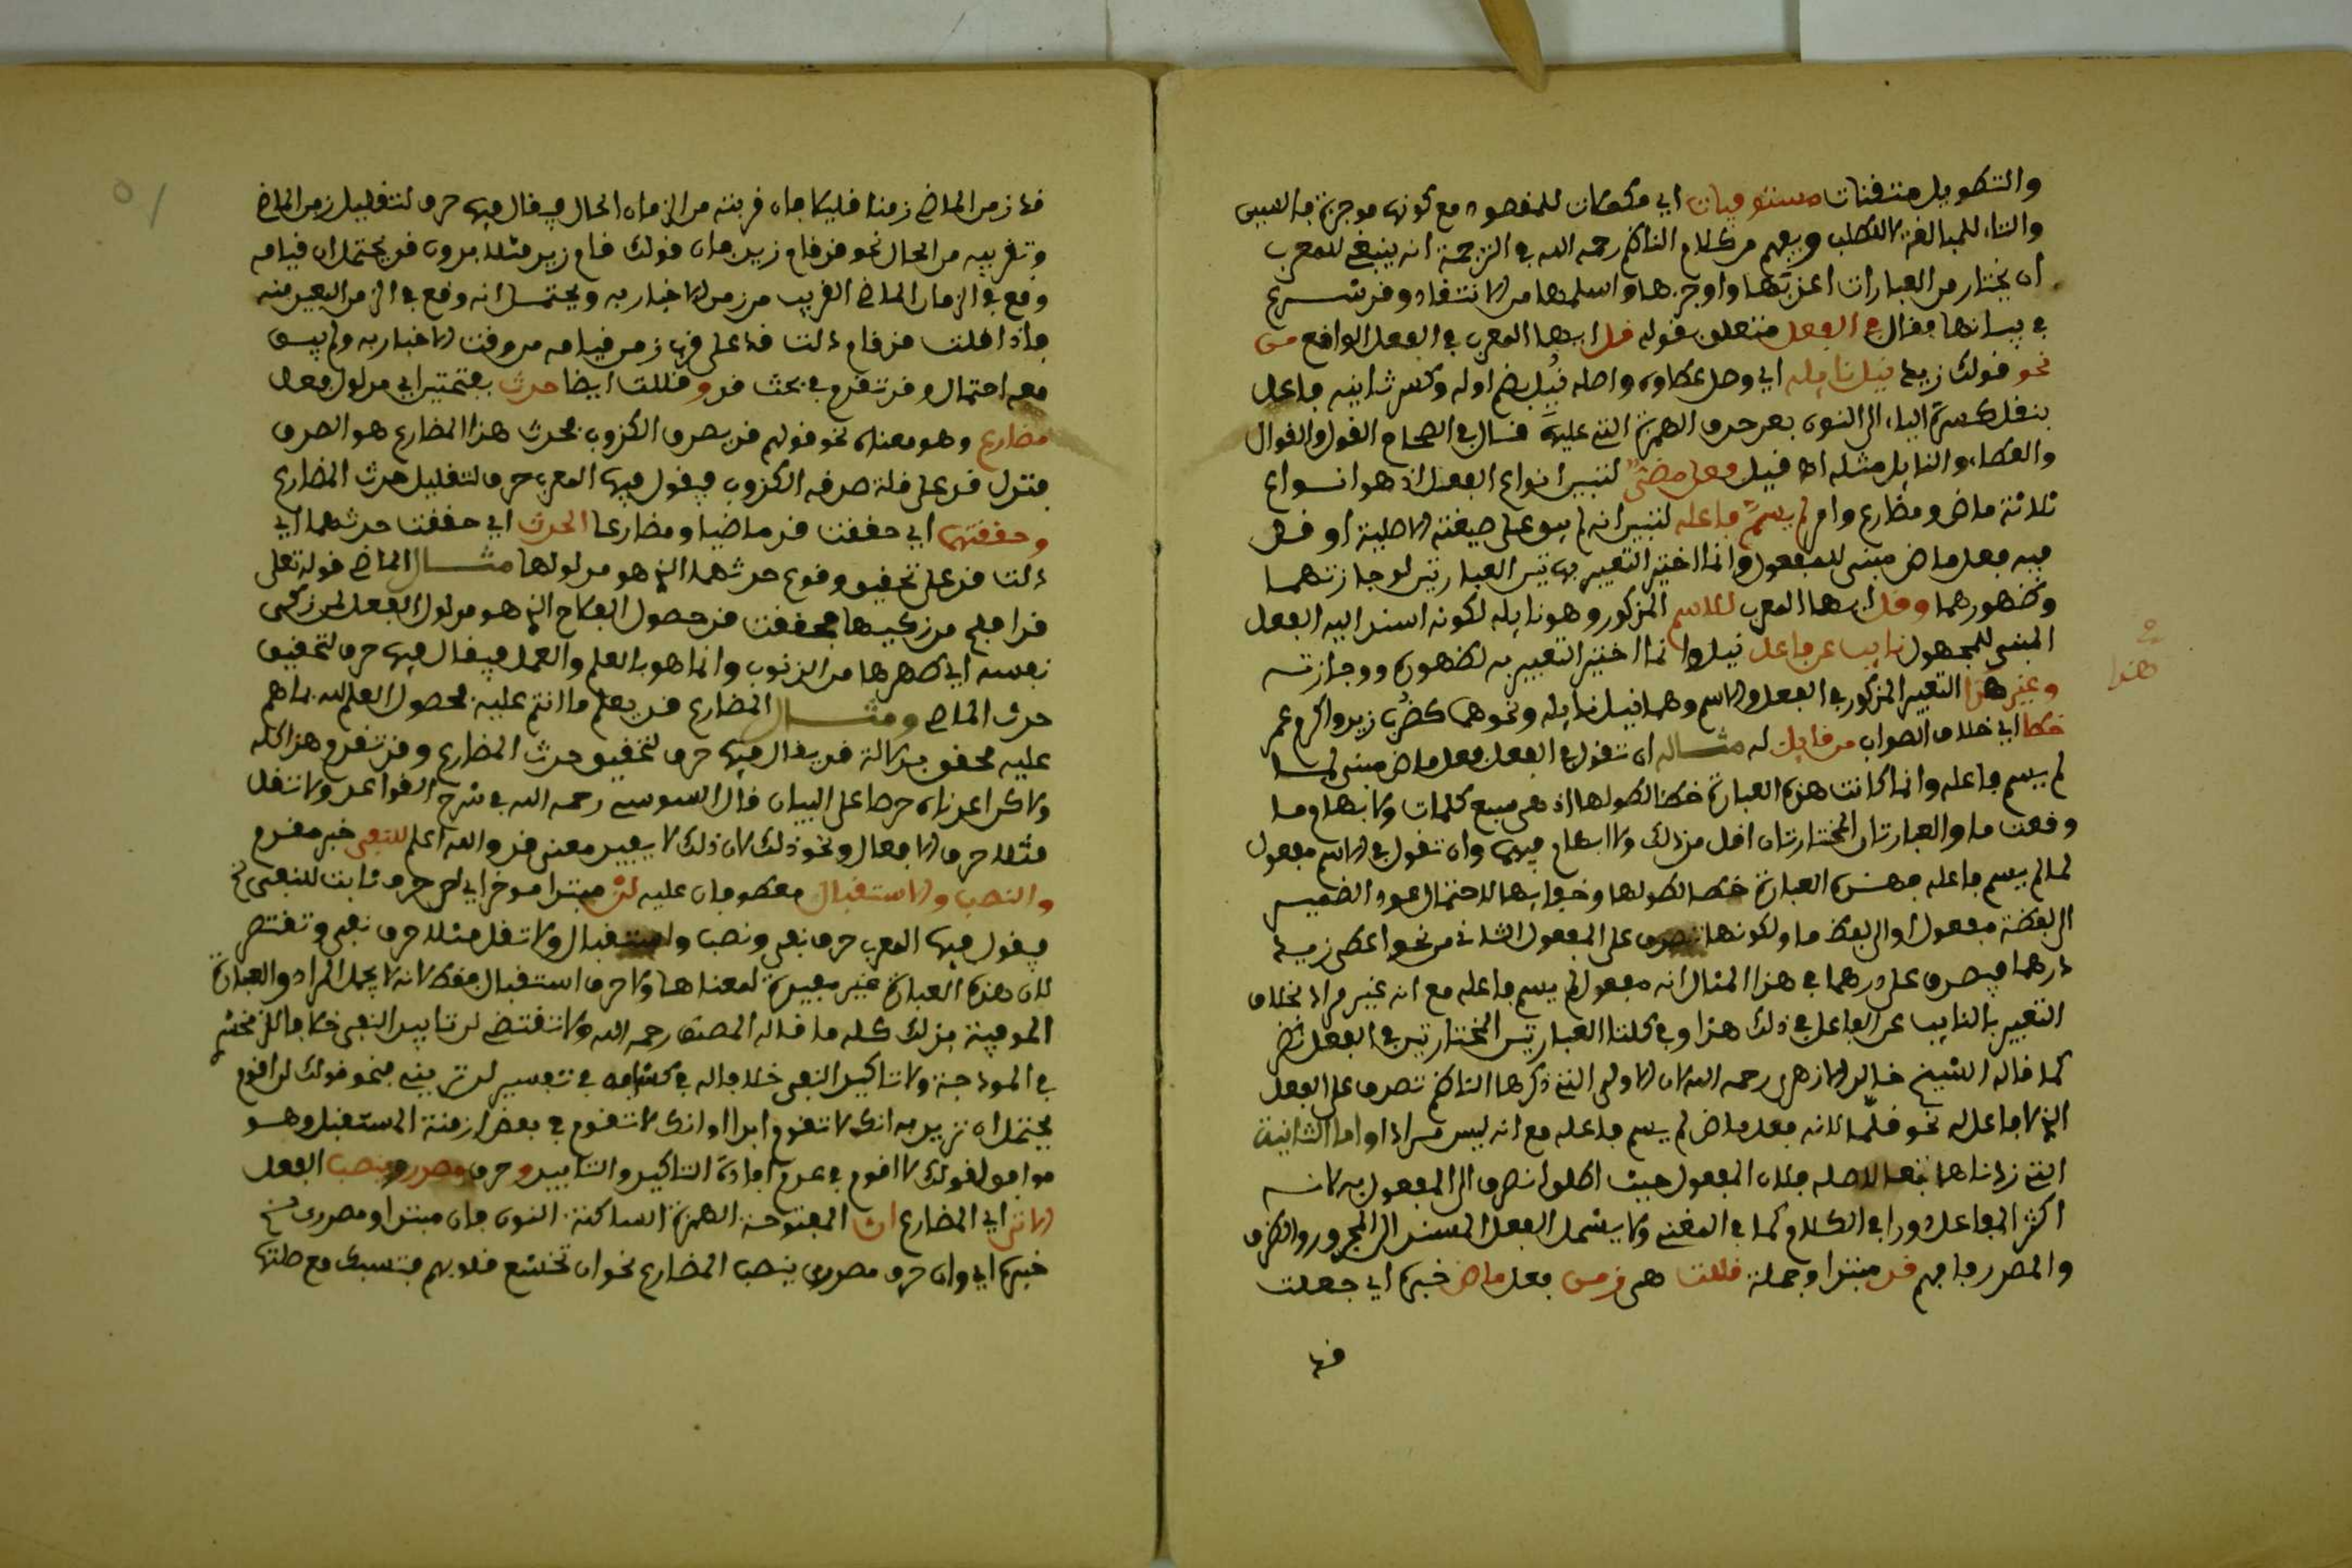 والتطويل متقنات مستوفيات اي مكملات للمقصود مع كونها موجزة فالسين
والتاء للمبالغة لا للطلب ويفهم من كلام الناظم رحمه الله في الترجمة انه ينبغي للمعرب
ان يختار من العبارات اعذبها واوجزها واسلمها من الانتقاد وقد شرع
في بيانها فقال في الفعل متعلق بقوله قل ايها المعرب في الفعل الواقع من
نحو قولك زيد نيل نايله اي وصل عطاؤه واصله نُيِل بضم اوله وكسر ثانيه فاعل
بنقل كسرة الياء الى النون بعد حذف الضمة التي عليها قال في الصحاح النول والنوال
والعطاء والنايل مثله اه قيل فعل مضى لتبيين انواع الفعل اذ هو انواع
ثلاثة ماض ومضارع وامر لم يسم فاعله لتبيين انه لم يبق على صيغته الاصلية او قل
فيه فعل ماض مبني للمفعول وانما اختير التعبير بهاتين العبارتين لوجازتهما
وظهورهما وقل ايها المعرب للاسم المذكور وهو نايله لكونه اسند اليه الفعل
المبني للمجهول نايب عن فاعل نيل وانما اختير التعبير به لظهوره ووجازته
وغير هذا التعبير المذكور في الفعل والاسم وهما نيل نايله ونحوهما كضُرب زيد واكرم عمر
خطا اي خلاف الصواب من قايل له مثاله ان تقول في الفعل فعل ماض مبني لما
لم يسم فاعله وانما كانت هذه العبارة خطا لطولها اذ هي سبع كلمات ولابهام ما
وقعت ما والعبارتان المختارتان اقل من ذلك ولا ابهام فيهما وان تقول في الاسم مفعول
لما لم يسم فاعله فهذه العبارة خطا لطولها وخفايها لاحتمال عود الضمير
الى لفظة مفعول او الى لفظ ما ولكونها تصدق على المفعول الثاني من نحو اعطى زيد
درهما فيصدق على درهما في هذا المثال انه مفعول لم يسم فاعله مع انه غير مراد بخلاف
التعبير بالنايب عن الفاعل في ذلك هذا وفي كلتا العبارتين المختارتين في الفعل نظر
كما قاله الشيخ خالد الازهري رحمه الله لان الاولى التي ذكرها الناظم تصدق على الفعل
الذي لا فاعل له نحو قلّما لانه فعل ماض لم يسم فاعله مع انه ليس مرادا واما الثانية
التي زدناها تبعا لاصله فلان المفعول حيث اطلق انصرف الى المفعول به لانه
اكثر المفاعل دورا في الكلام كما في المغني ولا يشمل الفعل المسند الى المجرور والظرف
والمصدر فافهم قد مبتدا وجملة قللت هي زمن فعل ماض خبره اي جعلت
قد
هذا
قد زمن الماضي زمنا قليلا فان قربته من الزمان الحال فيقال فيها حرف لتقليل زمن الماضي
وتقريبه من الحال نحو قد قام زيد فان قولك قام زيد مثلا بدون قد يحتمل ان قيامه
وقع في الزمان الماضي القريب من زمن الاخبار به ويحتمل انه وقع في الزمن البعيد منه
فاذا قلت قد قام دلت قد على قرب زمن قيامه من وقت الاخبار به ولم يبق
معه احتمال وقد تقدم في بحث قد وقللت ايضا حدث بفتحتين اي مدلول فعل
مضارع وهو معناه نحو قولهم قد يصدق الكذوب فحدث هذا المضارع هو الصدق
فتدل قد على قلة صدق الكذوب فيقول فيها المعرب حرف لتقليل حدث المضارع
وحققتهما اي حققت قد ماضيا ومضارعا الحدث اي حققت حدثهما اي
دلت قد على تحقيق وقوع حدثهما الذي هو مدلولها مثال الماضي قوله تعلى
قد افلح من زكيها فحققت قد حصول الفلاح الذي هو مدلول الفعل لمن زكى
نفسه اي طهرها من الذنوب وانما هو بالعلم والعمل فيقال فيها حرف لتحقيق
حدث الماضي ومثال المضارع قد يعلم ما انتم عليه فحصول العلم لله بما هم
عليه محقق بدلالة قد يقال فيها حرف لتحقيق حدث المضارع وقد تقدم هذا كله
ولاكن اعدناه حرصا على البيان قال السوسي رحمه الله في شرح القواعد ولا تقل
مثلا حرف الافعال ونحو ذلك لان ذلك لا يفيد معنى قد والله اعلم للنفي خبر مقدم
والنصب والاستقبال معطوفان عليه لن مبتدا موخر اي لن حرف ثابت للنفي الخ
فيقول فيها المعرب حرف نفي ونصب واستقبال ولا تقل مثلا حرف نفي وتقتصر
لان هذه العبارة غير مفيدة لمعناها ولا حرف استقبال فقط لانه لا يحمل المراد والعبارة
الموفية بذلك كله ما قاله المصنف رحمه الله ولا تقتضي لن تابيد النفي خلافا للزمخشري
في انموذجه ولا تاكيد النفي خلافا له في كشافه في تفسير لن تريني فنحو قولك لن اقوم
يحتمل ان تريد به انك لا تقوم ابدا او انك لا تقوم في بعض ازمنة المستقبل وهو
موافق لقولك لا اقوم في عدم افادة التاكيد والتابيد وحرف مصدر ونصب الفعل
الاتي اي المضارع ان المفتوحة الهمزة الساكنة النون فان مبتدا ومصدري الخ
خبره اي وان حرف مصدري ينصب المضارع نحو ان تخشع قلوبهم فتسبك مع صلتها